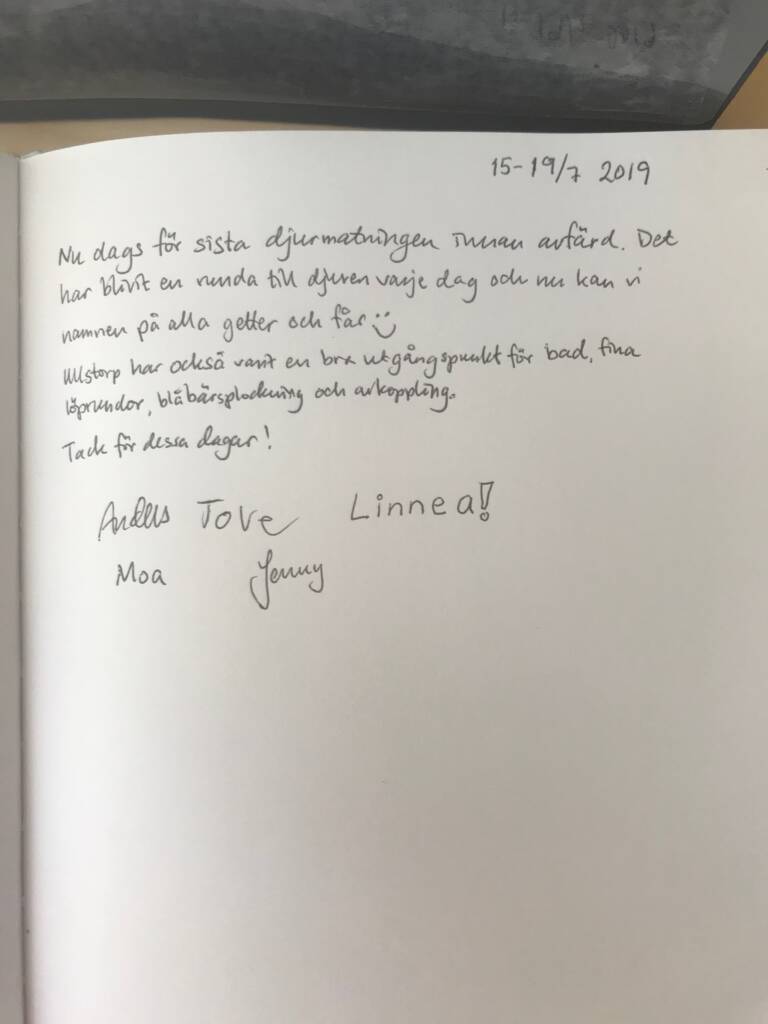 15-19/7 2019
Nu dags för sista djurmatningen innan avfärd. Det
har blivit en runda till djuren varje dag och nu kan vi
namnen på alla getter och får :)
Ullstorp har också varit en bra utgångspunkt för bad, fina
löprundor, blåbärsplockning och avkoppling.
Tack för dessa dagar!
Anders Tove Linnea!
Moa Jenny